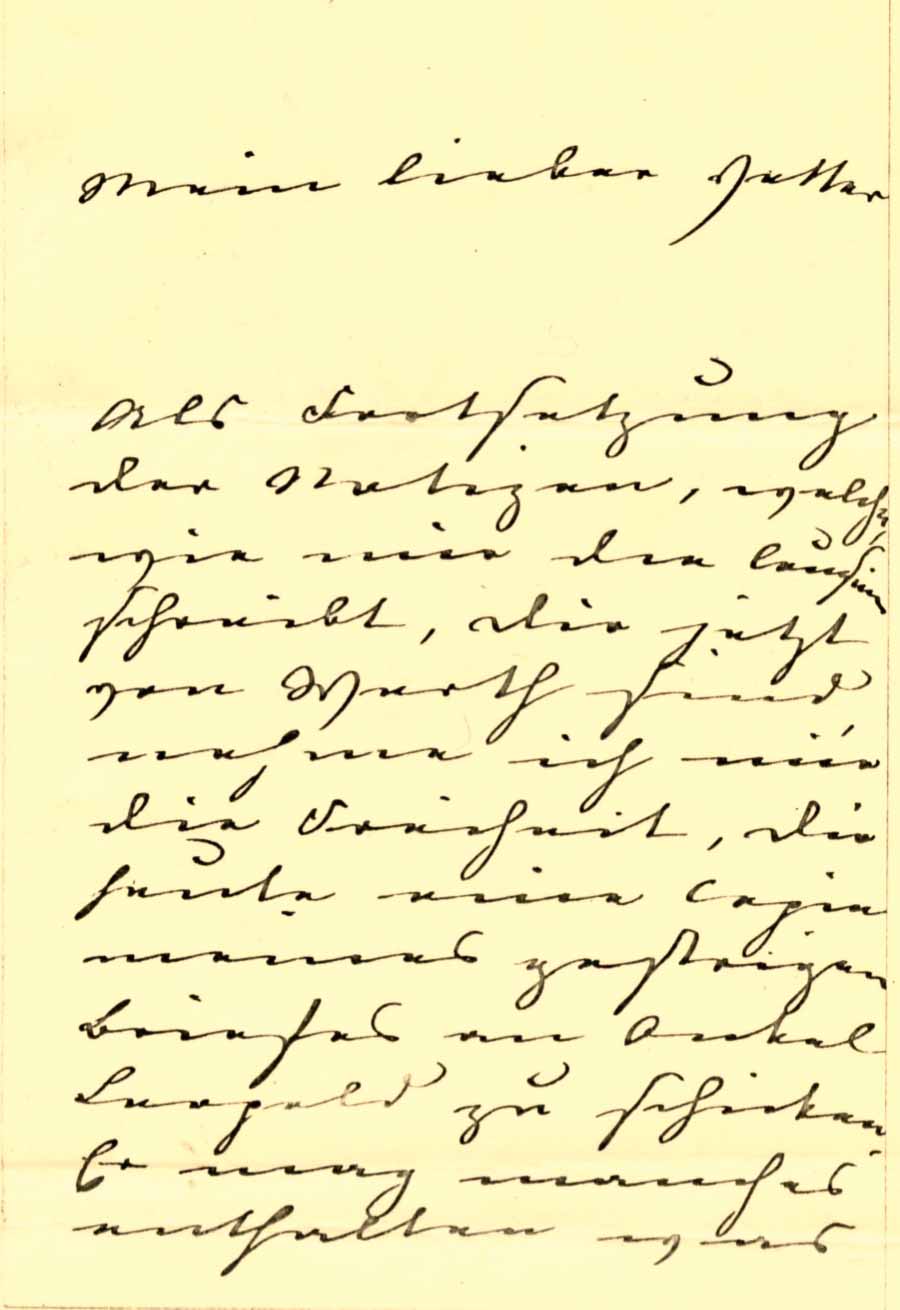 Mein lieber Vetter
Als Fortsetzung
der Notizen, welche,
wie mir die Cousine
schreibt, Dir jetzt
von Werth sind
nehme ich mir
die Freiheit, Dir
heute eine Copie
meines gestrigen
Briefes an Onkel
Leopold zu schicken.
Er mag manches
enthalten was